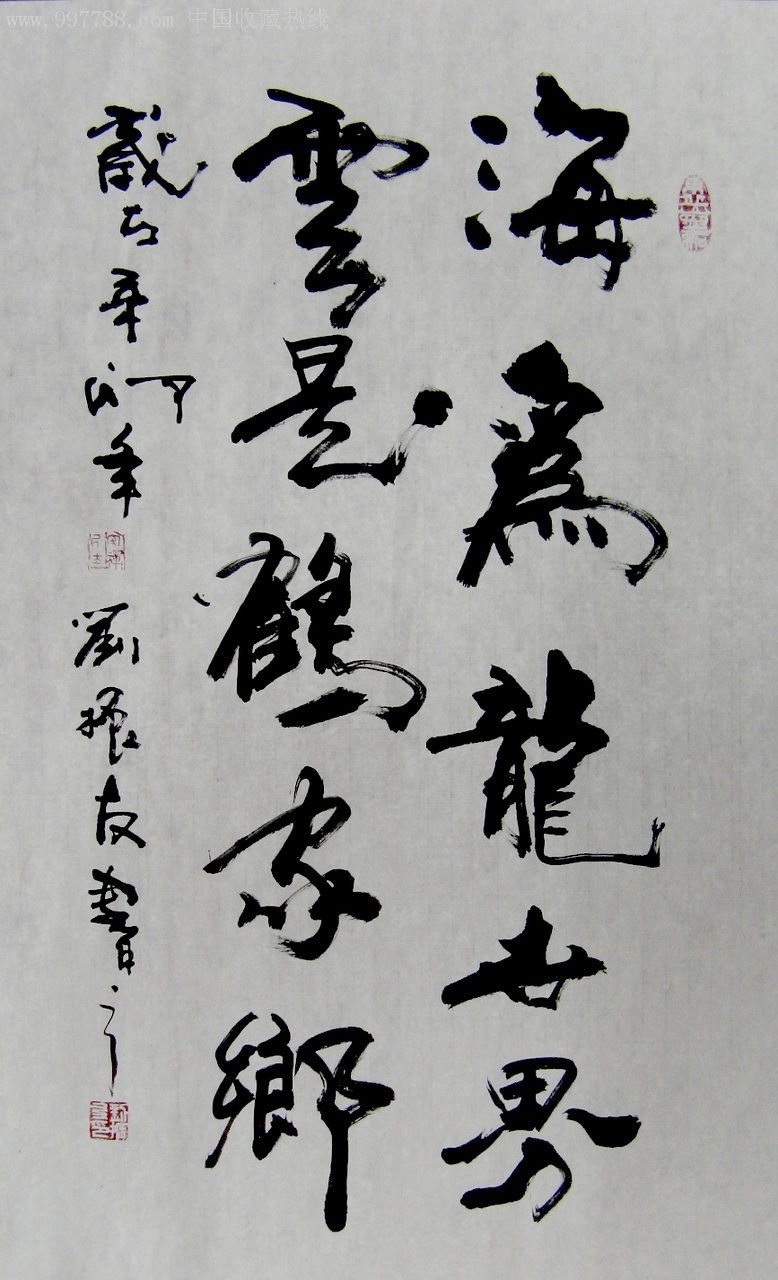 www.997788.com 中国收藏热线
海爲龍世界
雲是鶴家鄉
歲在辛卯年
劉振友書